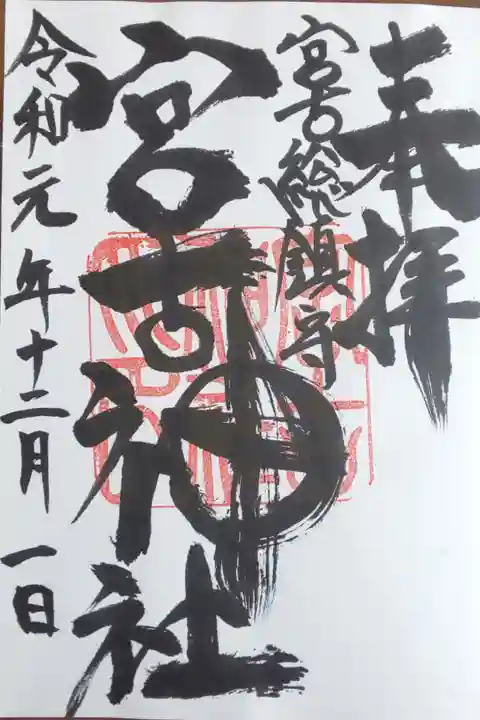 奉拝
宮古総鎮守
宮古神社
令和元年十二月一日